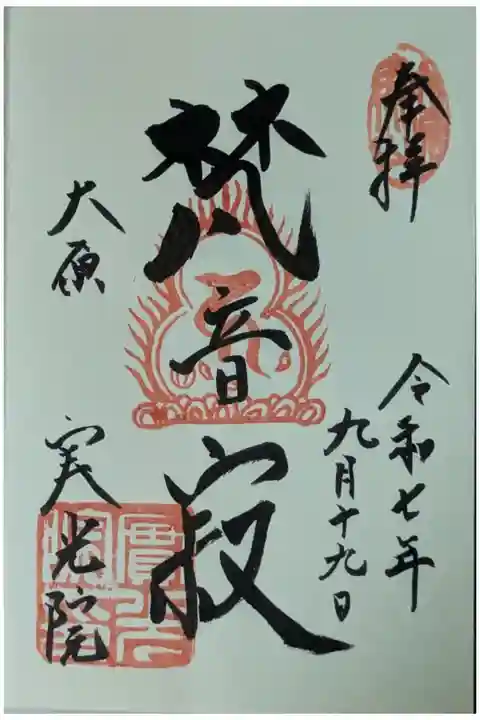 奉拝
令和七年
九月十九日
梵音寂
大原
実光院